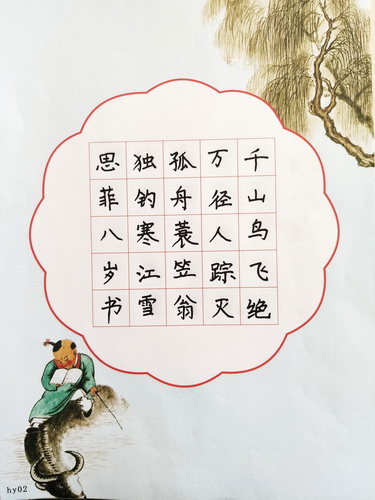 千山鸟飞绝
万径人踪灭
孤舟蓑笠翁
独钓寒江雪
思菲八岁书
hy02